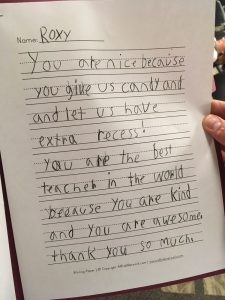 Name: ROXY
You are nice because
you give us candy and
and let us have
extra recess!
you are the best
teacher in the world
because you are kind
and you are awesome.
thank you so much.